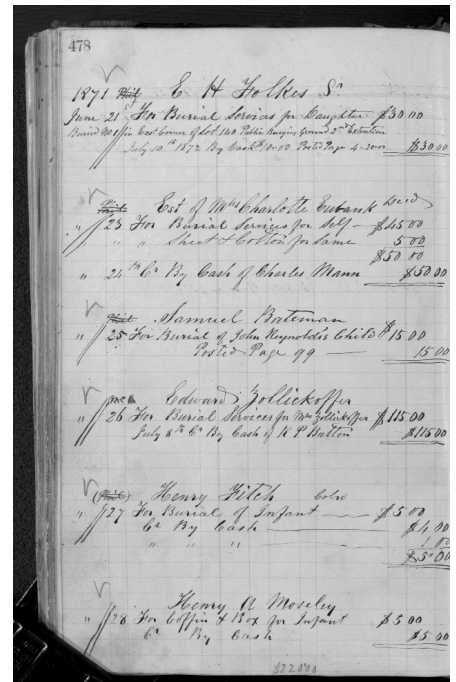 478
1871 E H Folkes Sr
June 21st For Burial Services for Daughter $30 00
Buried No 9 in East Corner of Lot 140 Public Burying Ground 2nd Extention
July 10th 1872 By Cash $10.00 Posted Page 4-2000 $30 00
Est of Mrs Charlotte Eubank Decd
" 23 For Burial Services for Self $45 00
" " Shirt & Cotton for Same 5 00
$50 00
" 24th Cr By Cash of Charles Mann $50 00
Samuel Bateman
" 25 For Burial of John Reynolds's Child $15 00
Posted Page 99 15 00
Edward Zollickoffer
" 26 For Burial Services for Mrs Zollickoffer $115 00
July 8th Cr By Cash of K P Button $115 00
(Phil) Henry Fitch Colrd
" 27 For Burial of Infant $5 00
Cr By Cash $4 00
" " " 1 00
$5 00
Henry A Moseley
" 28 For Coffin & Box for Infant $5 00
Cr By Cash $5 00
$220 00